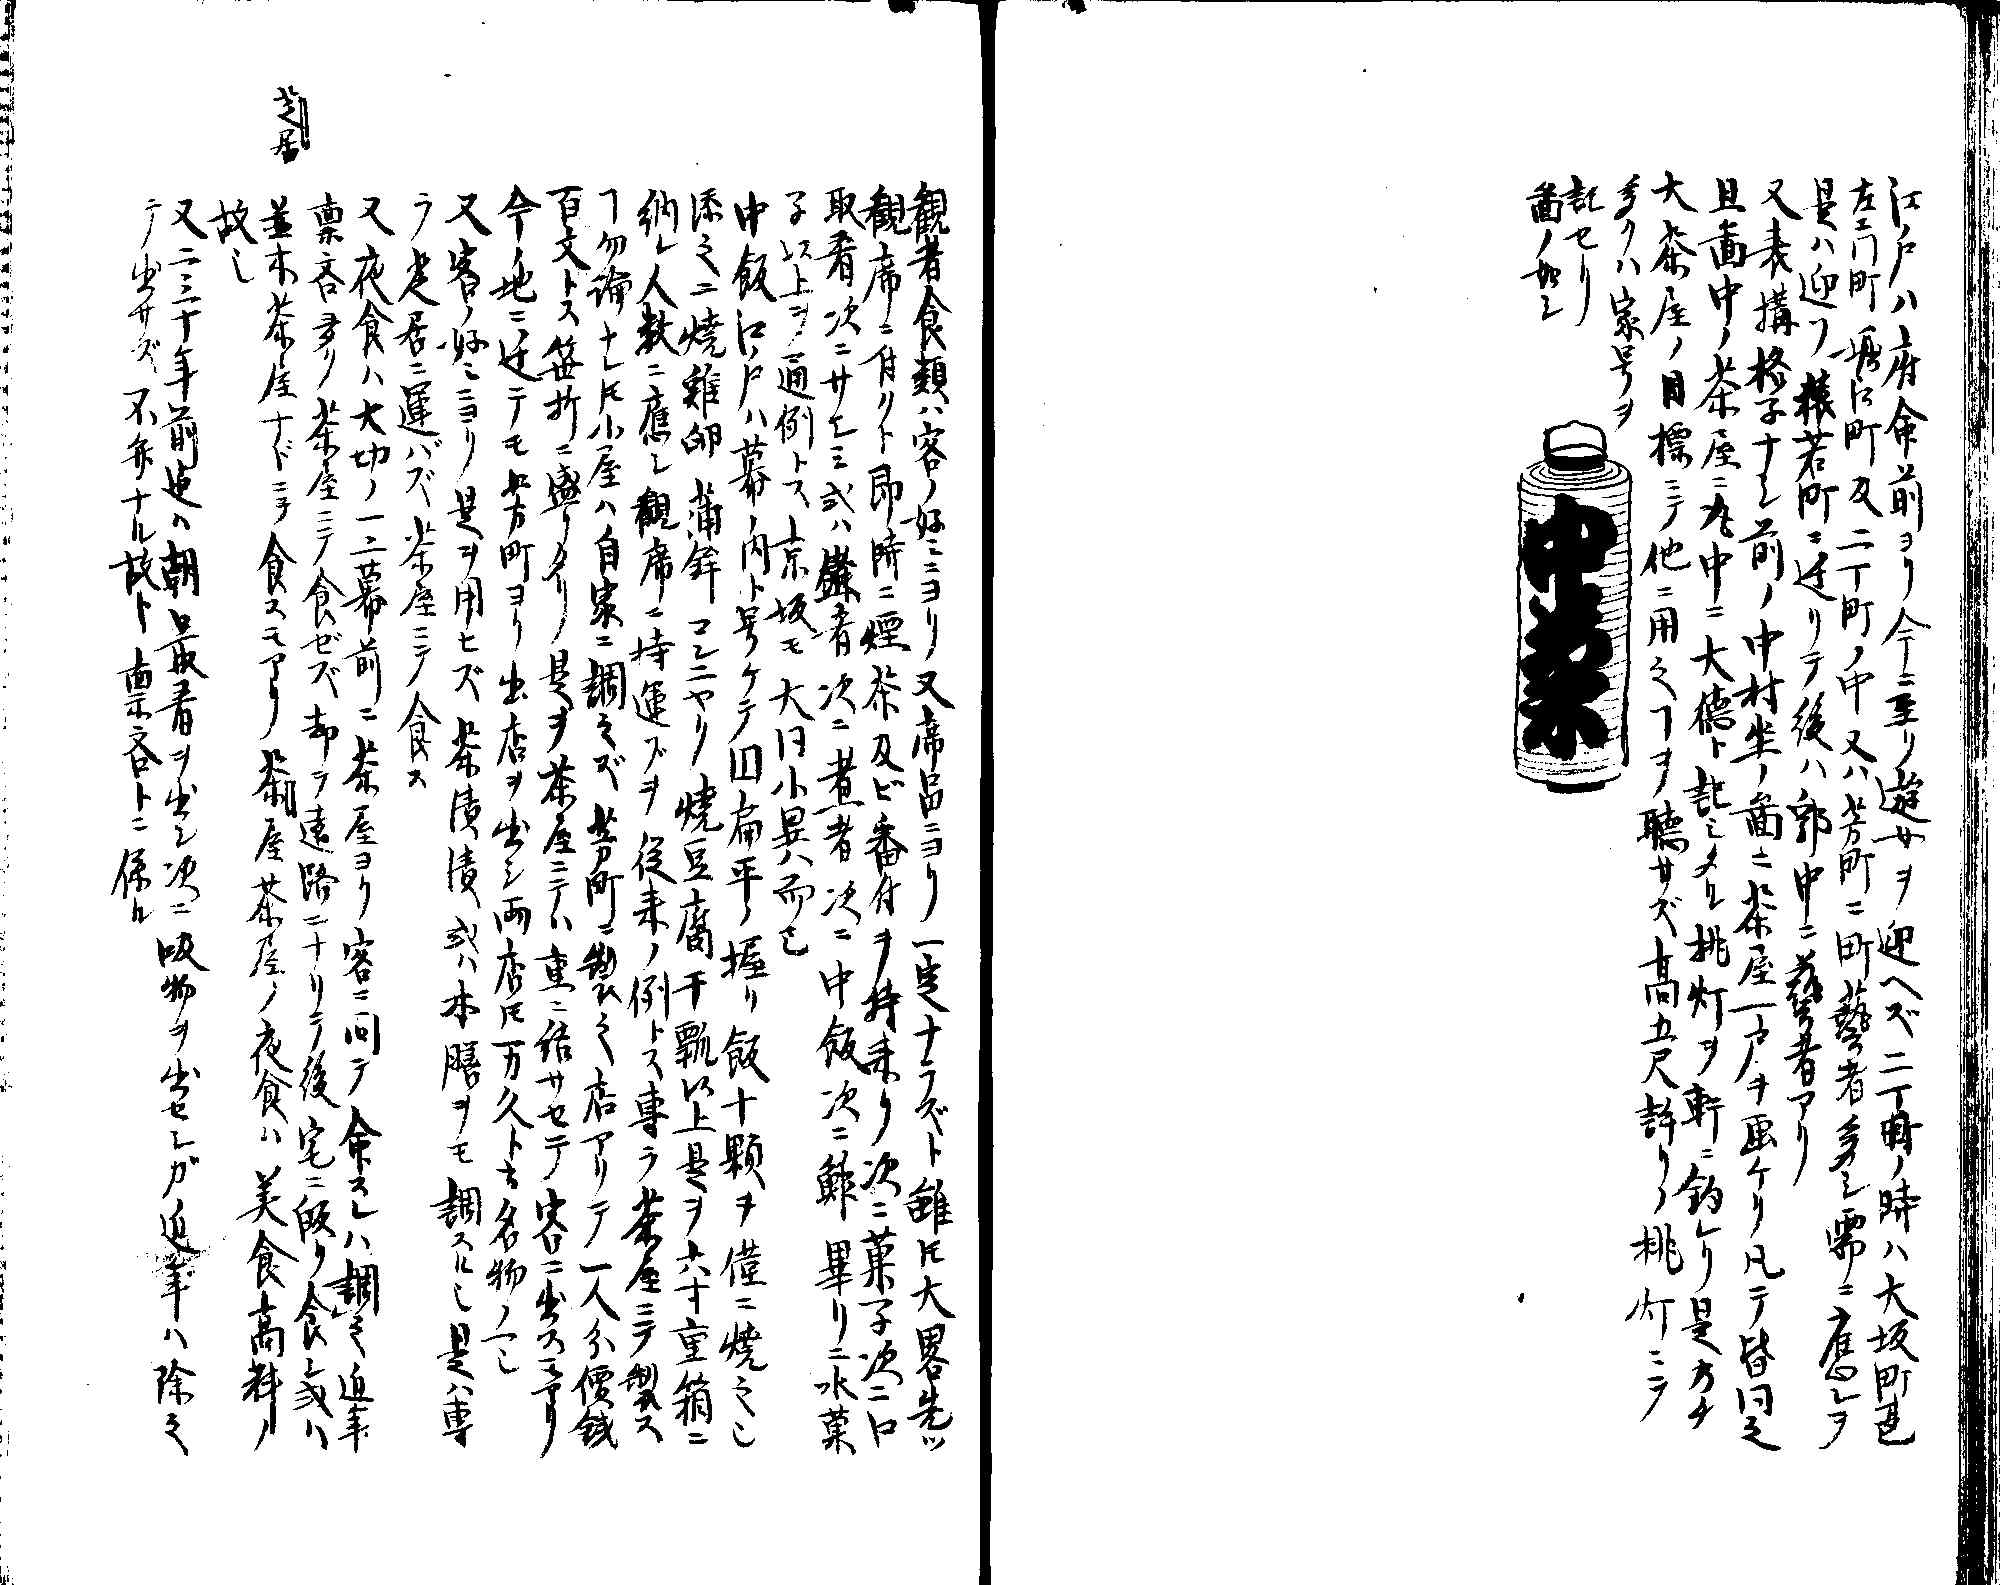 江戸ハ府命前ヨリ今ニ至リ遊女ヲ迎ヘズ二丁町ノ時ハ大坂町甚
左エ門町堀江町及二丁町ノ中又ハ芳町ニ町藝者多シ需ニ應シヲ
是ハ迎フ猿若町ニ迁リテ後ハ郭中ニ藝者アリ
又表構格子ナシ前ノ中村坐ノ畨ニ茶屋一戸ヲ画ケリ凡テ皆同之
且畨中ノ茶屋ニ丸中ニ大德ト記シタル挑灯ヲ軒ニ釣レリ是方チ
大茶屋ノ目標ニテ他ニ用之ヿヲ聴サズ高五尺許リノ挑灯ニテ
多クハ家号ヲ
記セリ
畨ノ如シ
中菊
観者食類ハ客ノ好ミニヨリ又席品ニヨリ一定ナラズト雖圧大畧先ツ
観席ニ付クト即時ニ煙茶及ビ番付ヲ持来リ次ニ菓子次ニ口
取肴次ニサシミ或ハ鱶者次ニ煮者次ニ中飯次ニ鮓畢リニ水菓
子以上ヲ通例トス京坂モ大同小異ハ而已
中飯江戸ハ幕ノ内ト号ケテ円扁平ノ握リ飯十顆ヲ僅ニ焼之也
添之ニ焼雞卵蒲鉾コンニヤク焼豆腐干瓢以上是ヲ六寸重箱ニ
納レ人数ニ應シ観席ニ持運ブヲ従来ノ例トス専ラ茶屋ニテ製ス
ヿ勿論ナレ圧小屋ハ自家ニ調之ズ芳町ニ製之店アリテ一人分價銭
百文トス笹折ニ盛リタリ是ヲ茶屋ニテハ重ニ詰サセテ客ニ出スモアリ
今ノ地ニ迁テモ芳町ヨリ出店ヲ出シ両店圧万久ト云名物ノ一也
又客ノ好ミニヨリ是ヲ用ヒズ茶漬漬或ハ本膳ヲモ調スル也是ハ専
ラ芝居ニ運バズ茶屋ニテ食ス
又夜食ハ大切ノ一二幕前ニ茶屋ヨリ客ニ問テ命スレハ調之近年
稟吝多ク茶屋ニテ食ゼズ却ラ遠路ニナリテ後宅ニ皈リ食シ或ハ
並木茶屋ナドニテ食スモアリ茶屋茶屋ノ夜食ハ美食高料ノ
故也
又二三十年前迠ハ朝口取肴ヲ出シ次ニ吸物ヲ出セシガ近年ハ除之
テ出サズ不弁ナル故ト稟吝トニ係ル
芝居